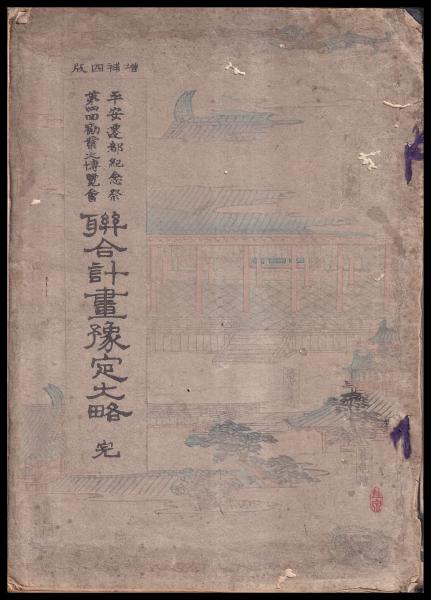 増補四版
平安遷都紀念祭
第四回勧業之博覧會
聯合計畫豫定大略 完